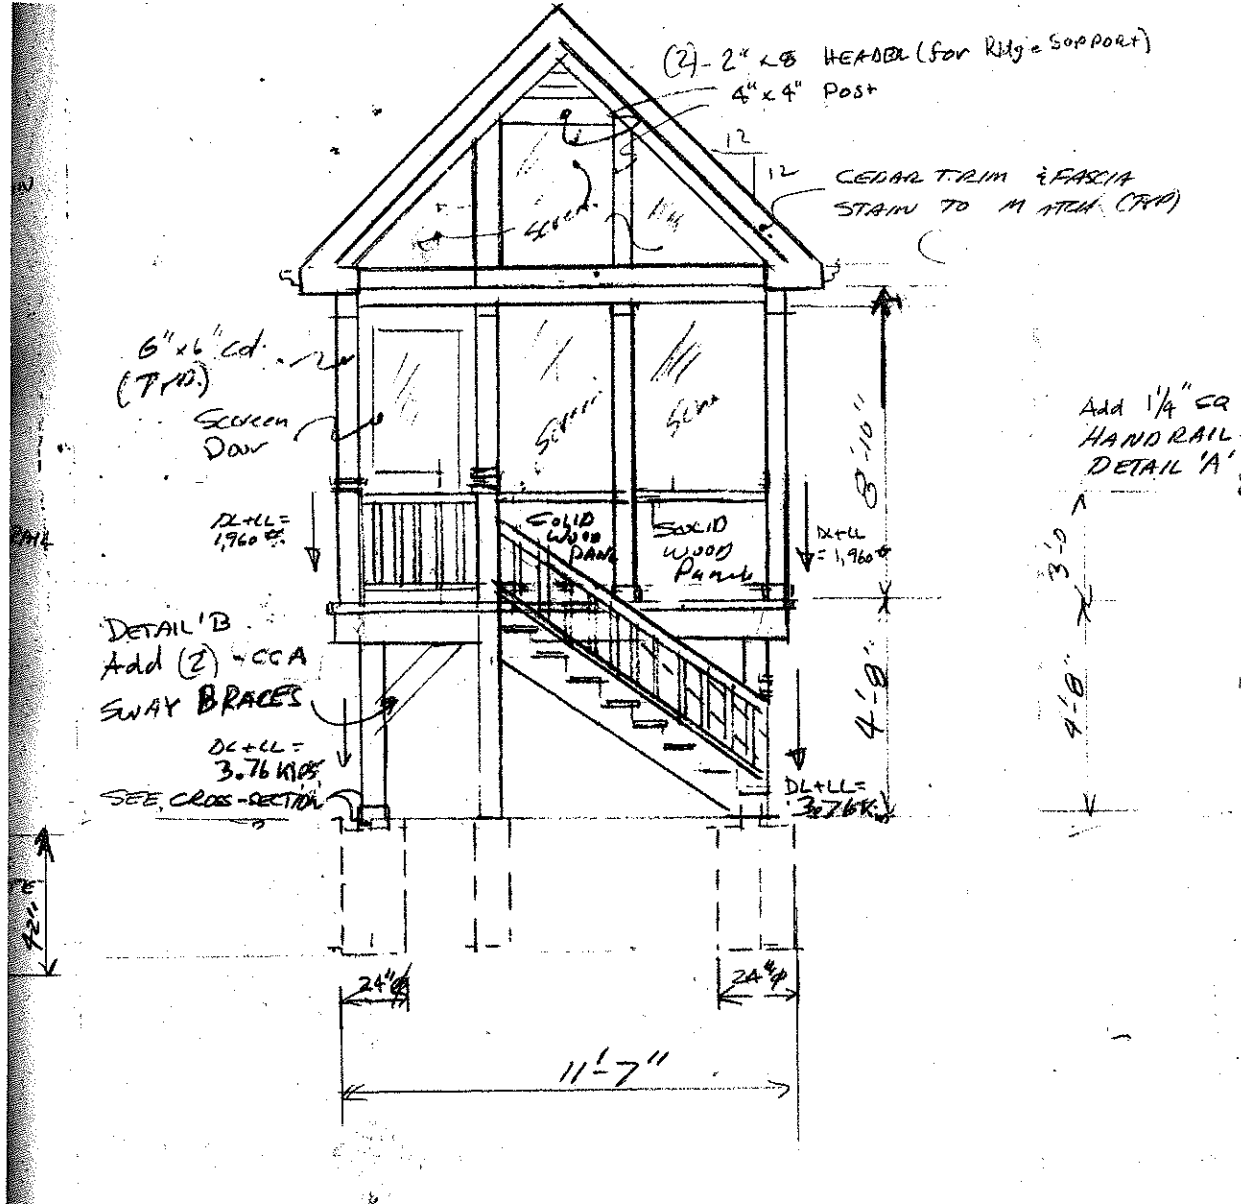 (2)- 2" x 8 HEADER (for Ridge Support)
4" x 4" Post
12
12
CEDAR TRIM & FASCIA
STAIN TO MATCH (TYP)
Screen
6" x 6" Col.
(TYP.)
Screen
Door
Screen
Screen
8'-10"
Add 1 1/4" SQ
HANDRAIL
DETAIL 'A'
DL+LL =
1,960 #
SOLID
WOOD
PANEL
SOLID
WOOD
Panel
DL+LL
= 1,960 #
3'-0
DETAIL 'B
Add (2) - CCA
SWAY BRACES
4'-8"
4'-8"
DL+LL =
3.76 KIPS
SEE CROSS-SECTION
DL+LL =
3.76K
42"
24"φ
24"φ
11'-7"